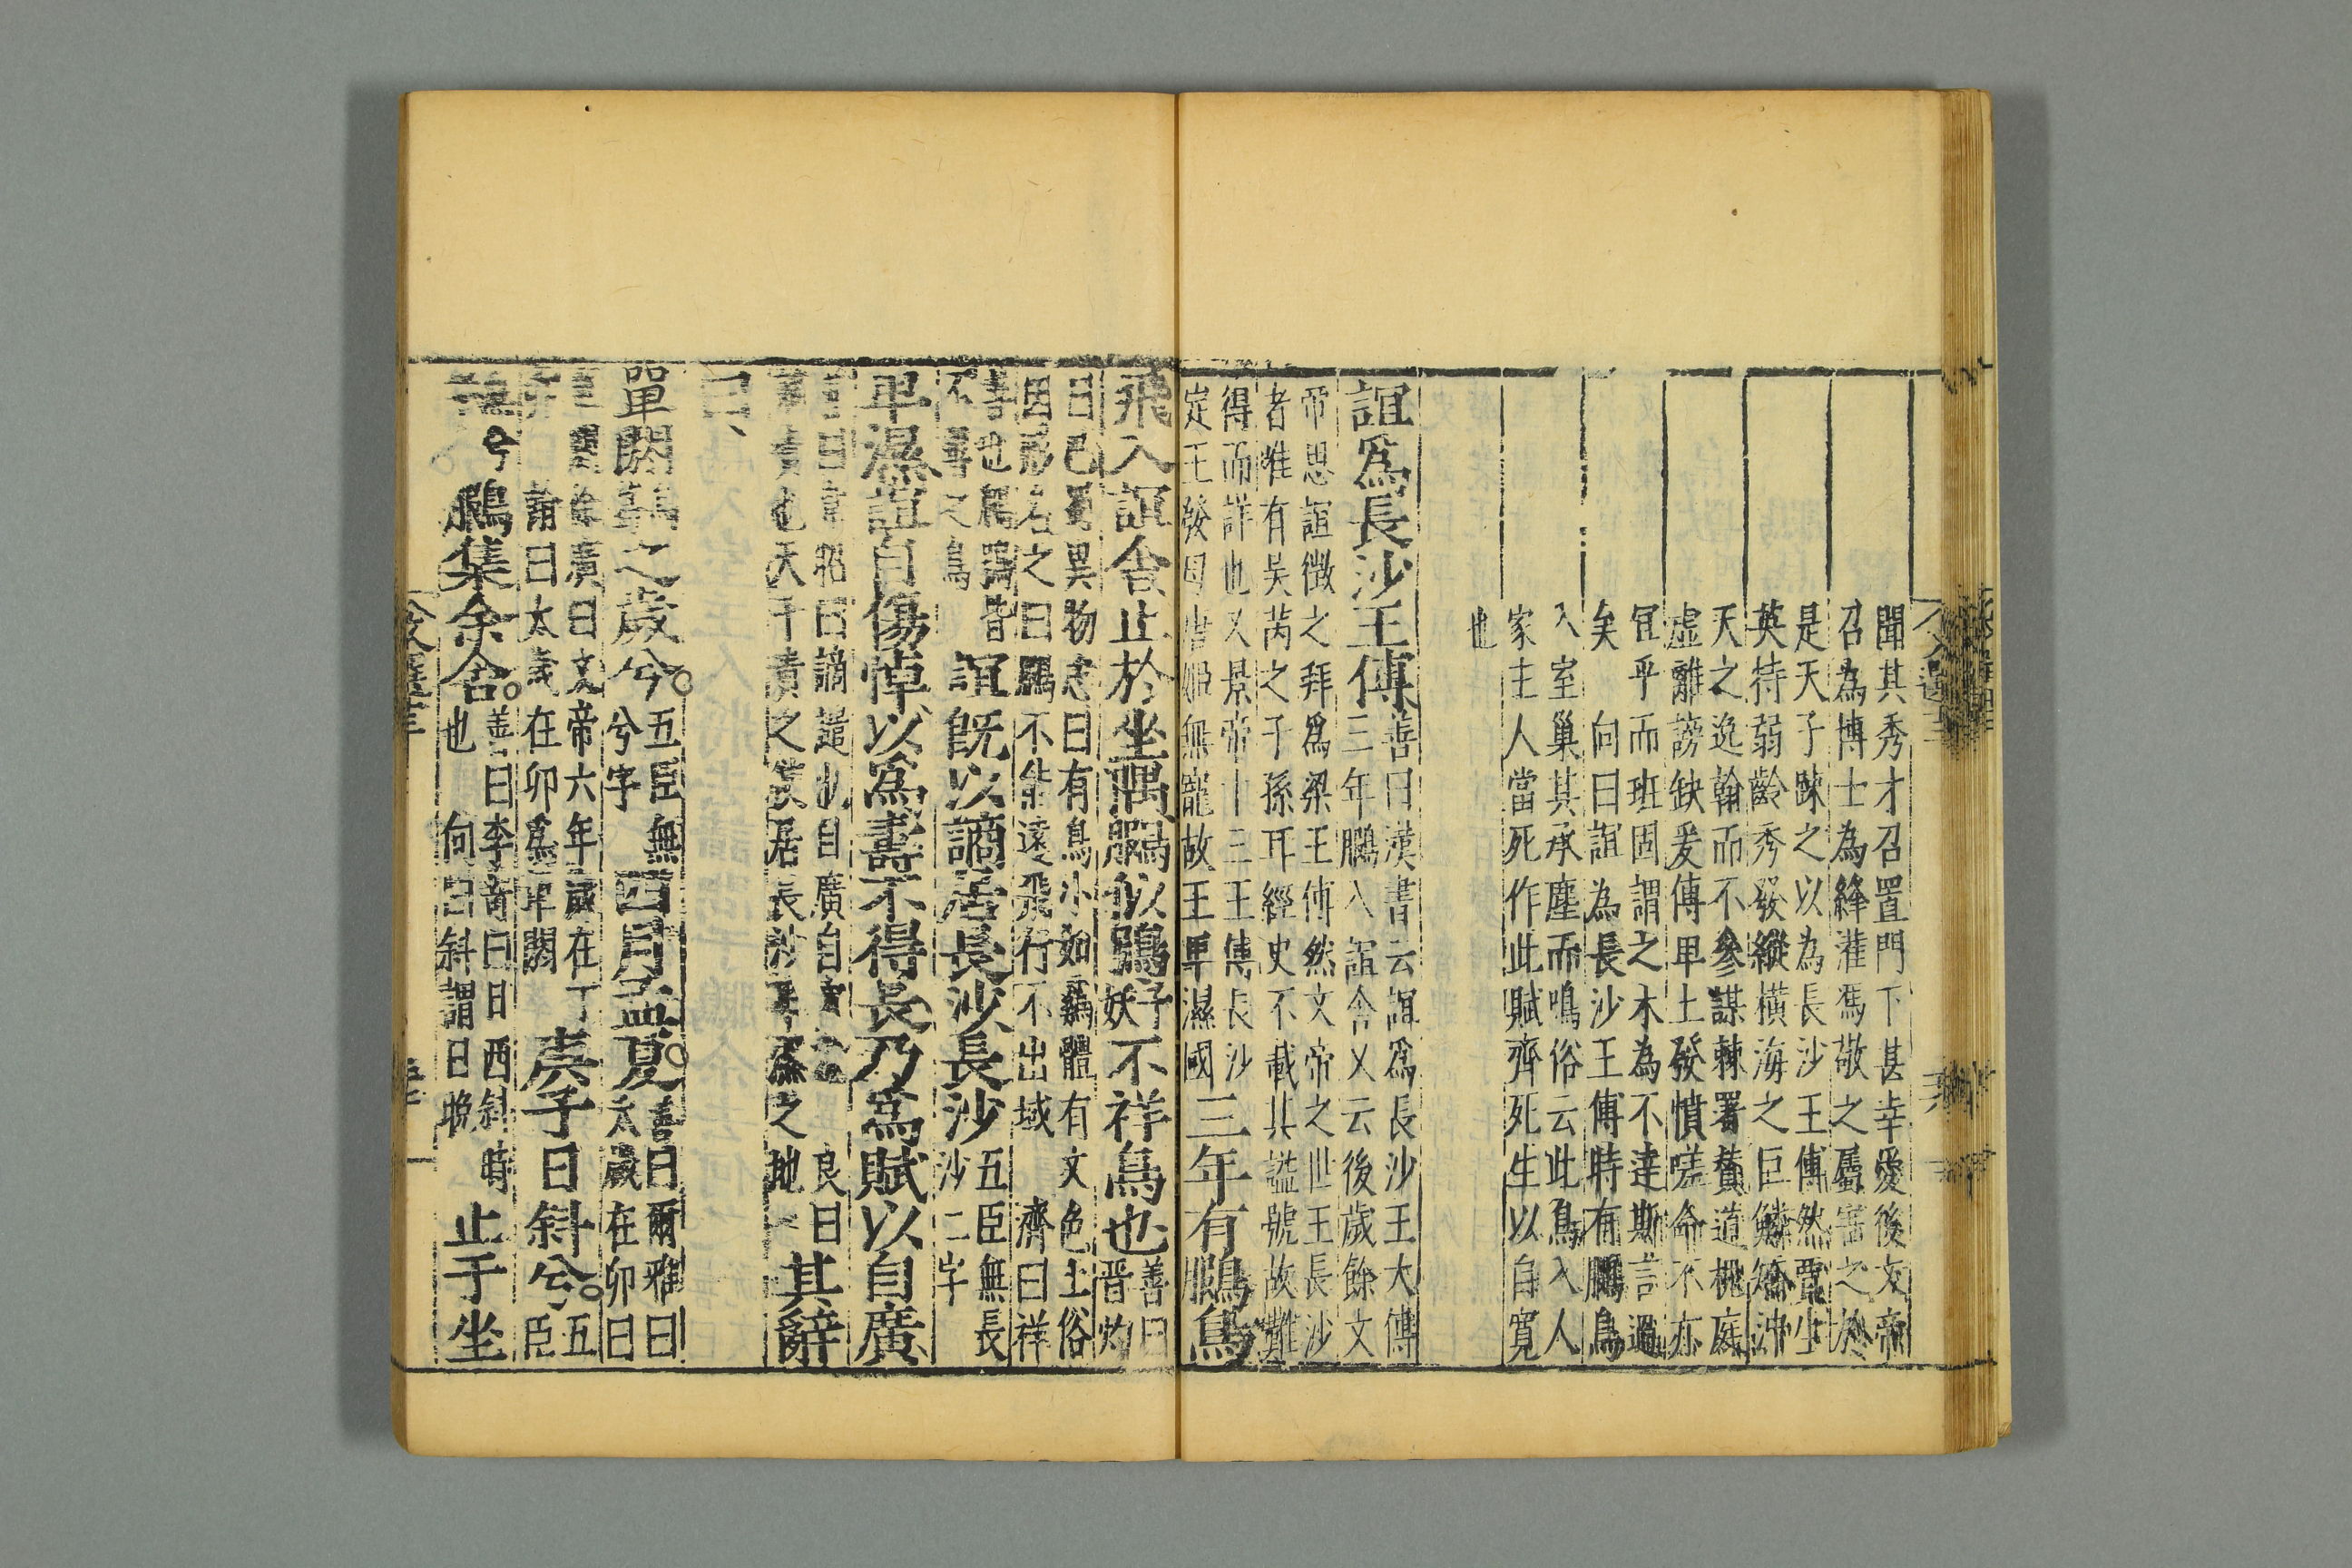 聞其秀才召置門下甚幸愛後文帝
召為博士為絳灌馮敬之屬害之於
是天子踈之以為長沙王傅然賈生
英特弱齡秀發縱橫海之巨鱗矯沖
天之逸翰而不參謀棘署贊道槐庭
虛離謗缺爰傅卑土發憤嗟命不亦
冝乎而班固謂之未為不達斯言過
矣　向曰誼為長沙王傅時有鵩鳥
入室巢其承塵而鳴俗云此鳥入人
家主人當死作此賦齊死生以自寛
也
誼爲長沙王傅
善曰漢書云誼爲長沙王大傅
三年鵩入誼舍又云後歲餘文
帝思誼徵之拜爲梁王傅然文帝之世王長沙
者唯有吳芮之子孫耳經史不載其謚號故難
得而詳也又景帝十三王傳長沙
定王發母唐姬無寵故王卑濕國
三年有鵩鳥
飛入誼舍止於坐隅鵩似鴞
不祥鳥也
善曰
晋灼
曰巴蜀異物志曰有鳥小如雞體有文色土俗
因形名之曰鵩不能遠飛行不出域　濟曰祥
善也鵩鴞皆
不善之鳥
誼旣以謫居長沙長沙
五臣無長
沙二字
卑濕誼自傷悼以爲壽不得長乃爲賦以自廣
良曰
責也天子責之使居長沙
其辭
曰
單閼之歲兮
五臣無
兮字
四月孟夏
善曰爾雅曰
太歲在卯曰
徐廣曰文帝六年歲在丁
卯　翰曰太歲在卯爲單閼
庚子日斜兮
五
臣
兮
鵩集余舍
善曰李竒曰日西斜時
也　向曰斜謂日晚
止于坐